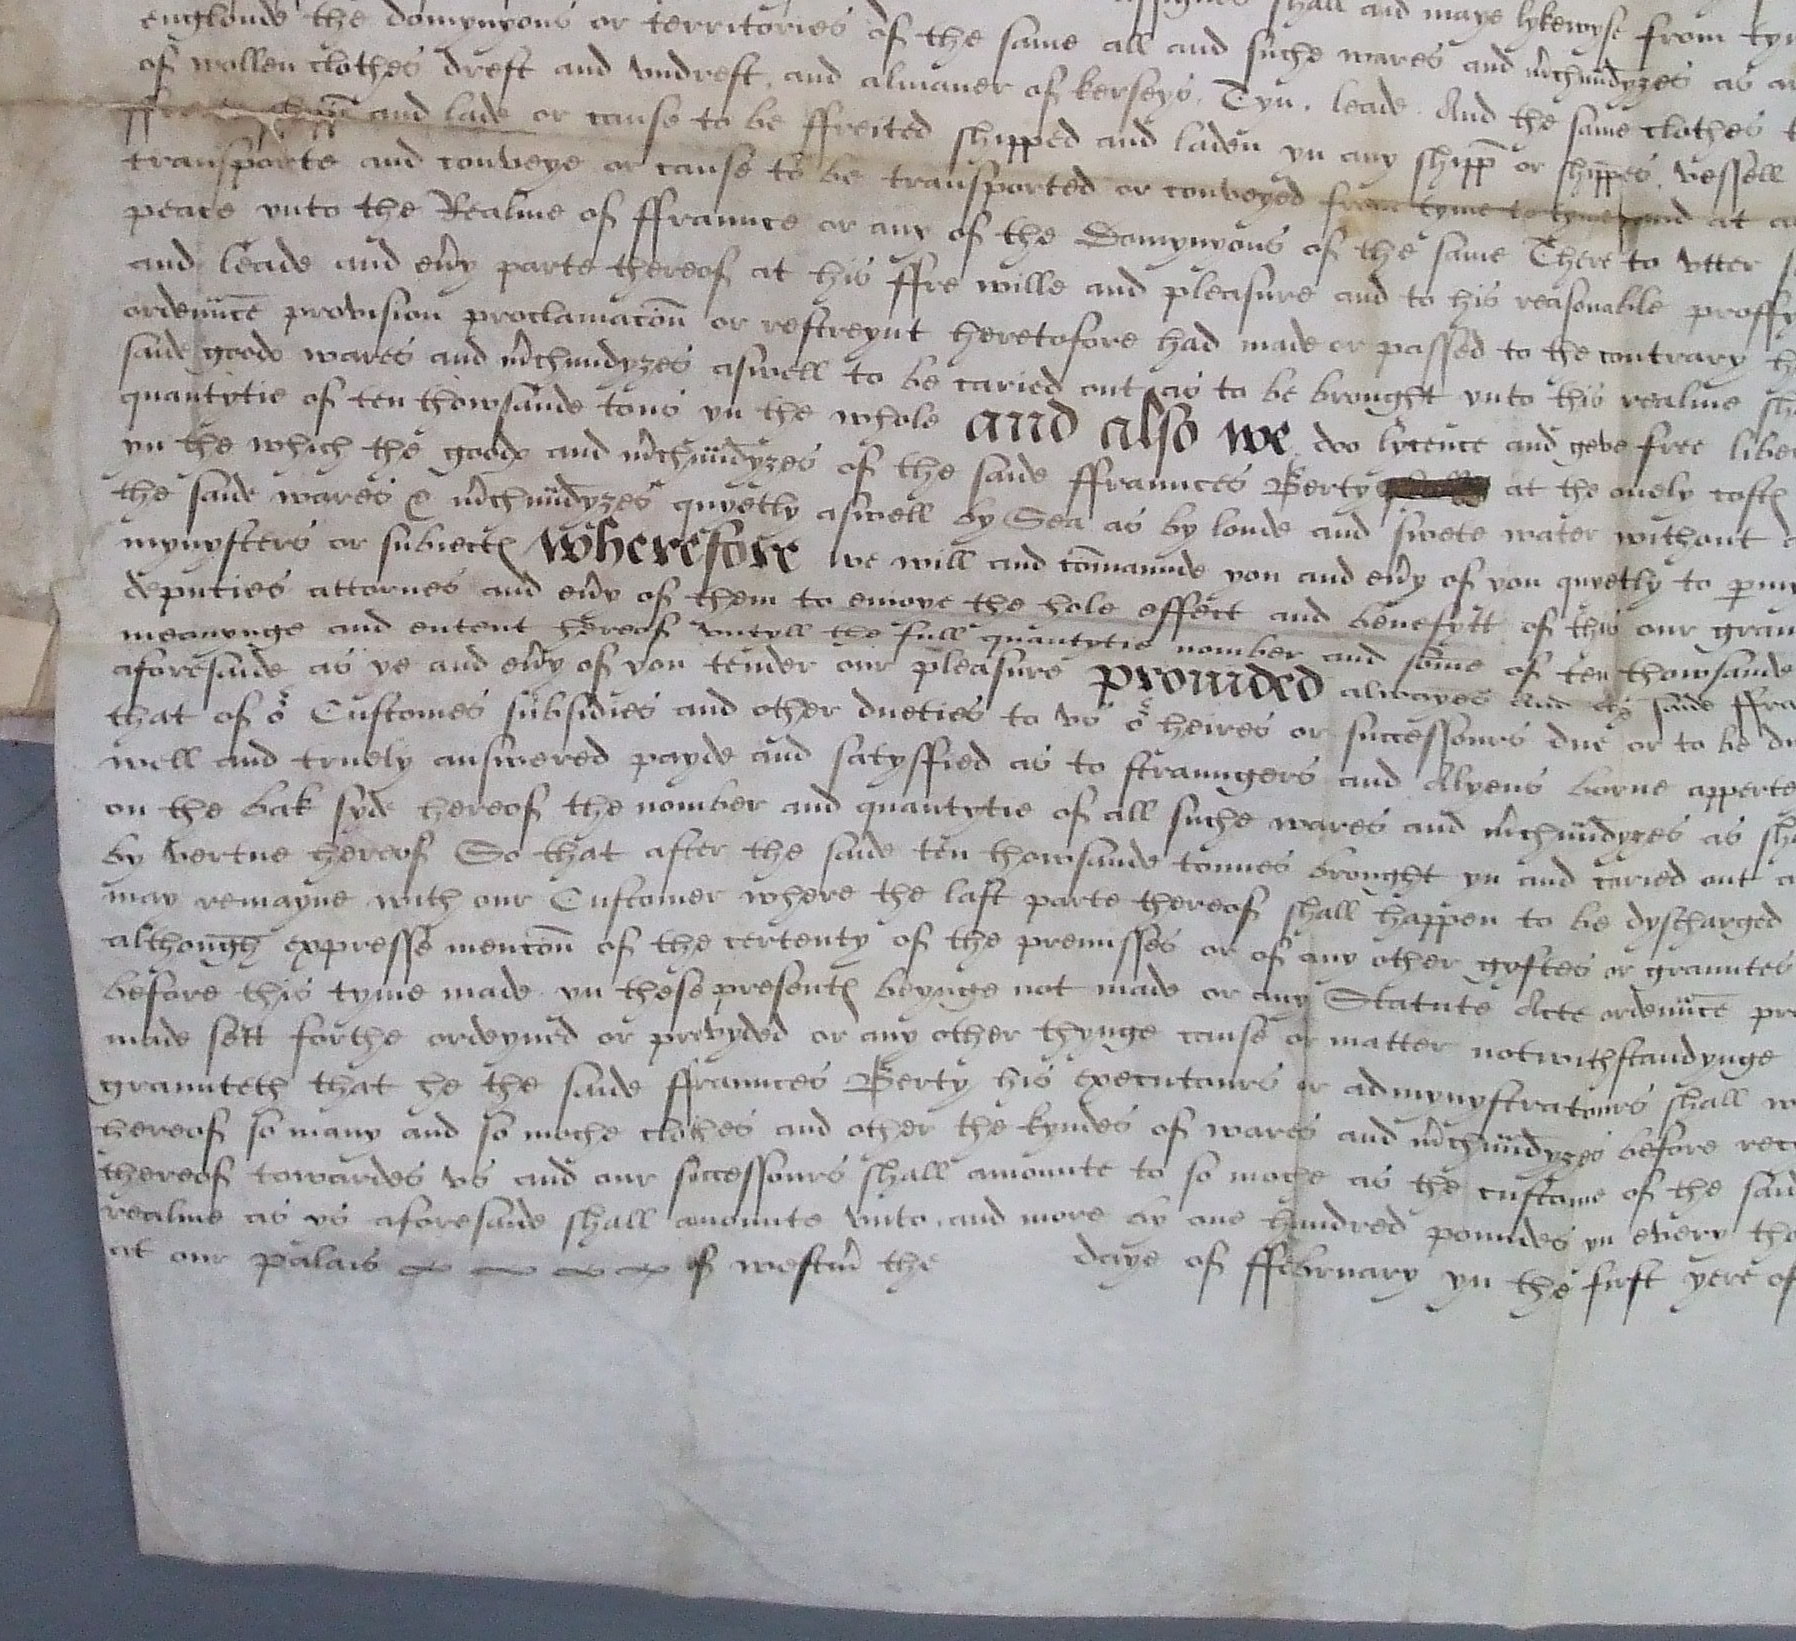 englonde the domynyons or territories of the same all and suche wares and m̃chũdyzes as
of wollen clothes drest and vndrest, and almaner of kerseys, Tyn, leade And the same clothes
and lade or cause to be ffreited shipped and laden yn any shipp̄ or shippes, vessell
transporte and conveye or cause to be transported or conveyed from tyme to tyme and at
peace vnto the Realme of ffraunce or any of the Domynyons of the same There to vtter
and leade and eu̾y parte thereof at his ffre wille and pleasure and to his reasonable
ordenũce provision proclamacōn or restreynt heretofore had made or passed to the contrary
saide goodꝭ wares and m̃chũdyzes aswell to be caried out as to be brought vnto this realme
quantytie of ten thowsande tons yn the whole and also we doo lycence and geve free
yn the which the goodꝭ and m̃chũdyzes of the saide ffraunces Berty at the onely costꝭ
the saide wares & m̃chũdyzes quyetly aswell by Sea as by londe and swete water without
mynysters or subiectꝭ wherefore we will and com̄aunde you and eu̾y of you quyetly to
deputies attornes and eu̾y of them to enioye the hole effect and benefytt of this our
meanynge and entent hereof vntyll the full quantytie nomber and som̄e of ten thowsande
aforesaide as ye and eu̾y of you tender our pleasure prouided alwayes And the saide
that of oʳ Customes subsidies and other dueties to vs oʳ heires or successours due or to be
well and truely answered payde and satysffied as to straungers and Alyens borne
on the bak syde hereof the nomber and quantytie of all suche wares and m̃chũdyzes as
by vertue hereof So that after the saide ten thowsande tonnes brought yn and caried out
may remayne with our Customer where the last parte thereof shall happen to be dyscharged
although expresse mencōn of the certenty of the premisses or of any other gyftes or grauntes
before this tyme made yn these presentꝭ beynge not made or any Statute Acte ordenũce
made sett forthe ordeyned or provyded or any other thynge cause or matter notwithstandynge
graunteth that he the saide ffraunces Berty his executours or admynystratours shall
hereof so many and so moche clothes and other the kyndes of wares and m̃chũdyzes before
thereof towardes vs and our successours shall amounte to so moche as the custome of the
realme as ys aforesaide shall amounte vnto, and more by one hundred poundes yn every
at our palais of westm̃ the daye of ffebruary yn the first yere of